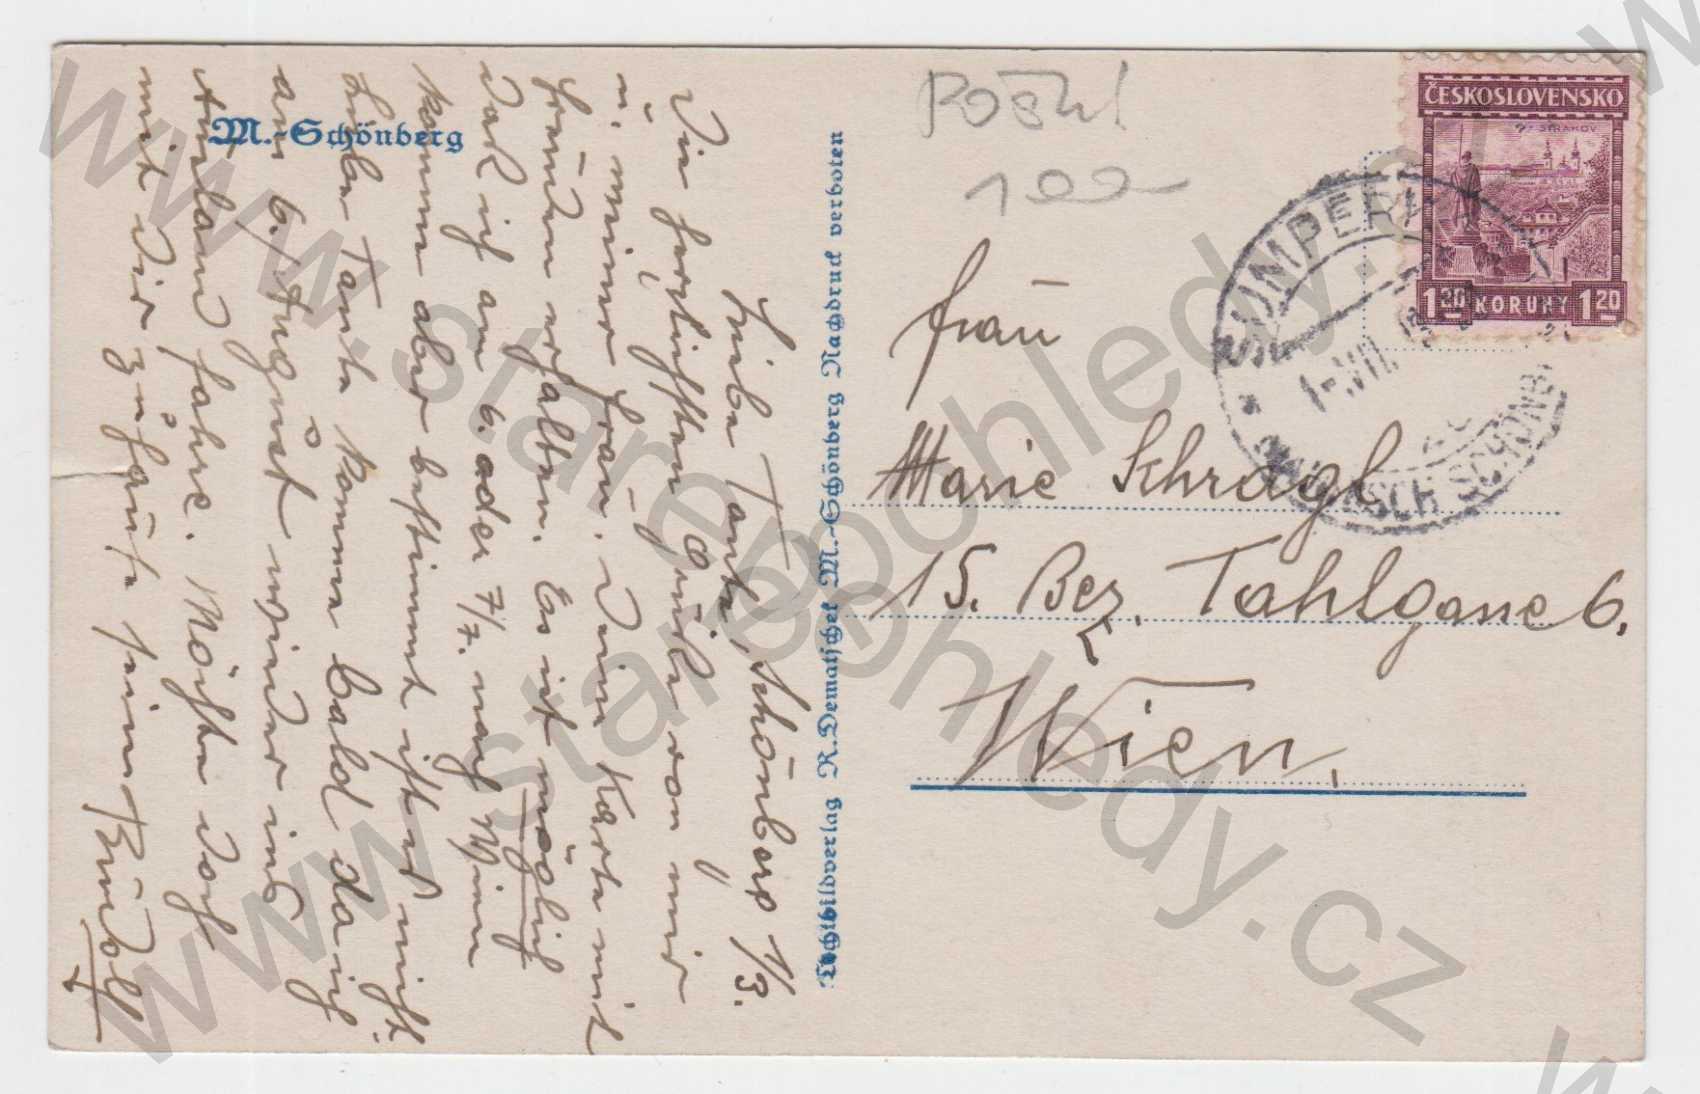 M.-Schönberg
Liebe Tante, Schönberg 1/3.
Die herzlichsten Grüße von mir
u. meiner Frau. Deine Karte mit
Freuden erhalten. Es ist möglich
daß ich am 6. oder 7/7. nach Wien
komme aber bestimmt ist es nicht.
Liebe Tante komme bald da ich
am 6. August wieder ins
Ausland fahre. Möchte doch
mit Dir zu Hause sein
Rudolf
Lichtbildverlag R. Dematschek M.-Schönberg Nachdruck verboten
100
ČESKOSLOVENSKO
STRAKOV
1 20 KORUNY 1 20
ŠUMPERK
SCHÖNB
Frau
Marie Schragl
15. Bez. Tahlgasse 6.
Wien.
www.starepohledy.cz
www.starepohledy.cz